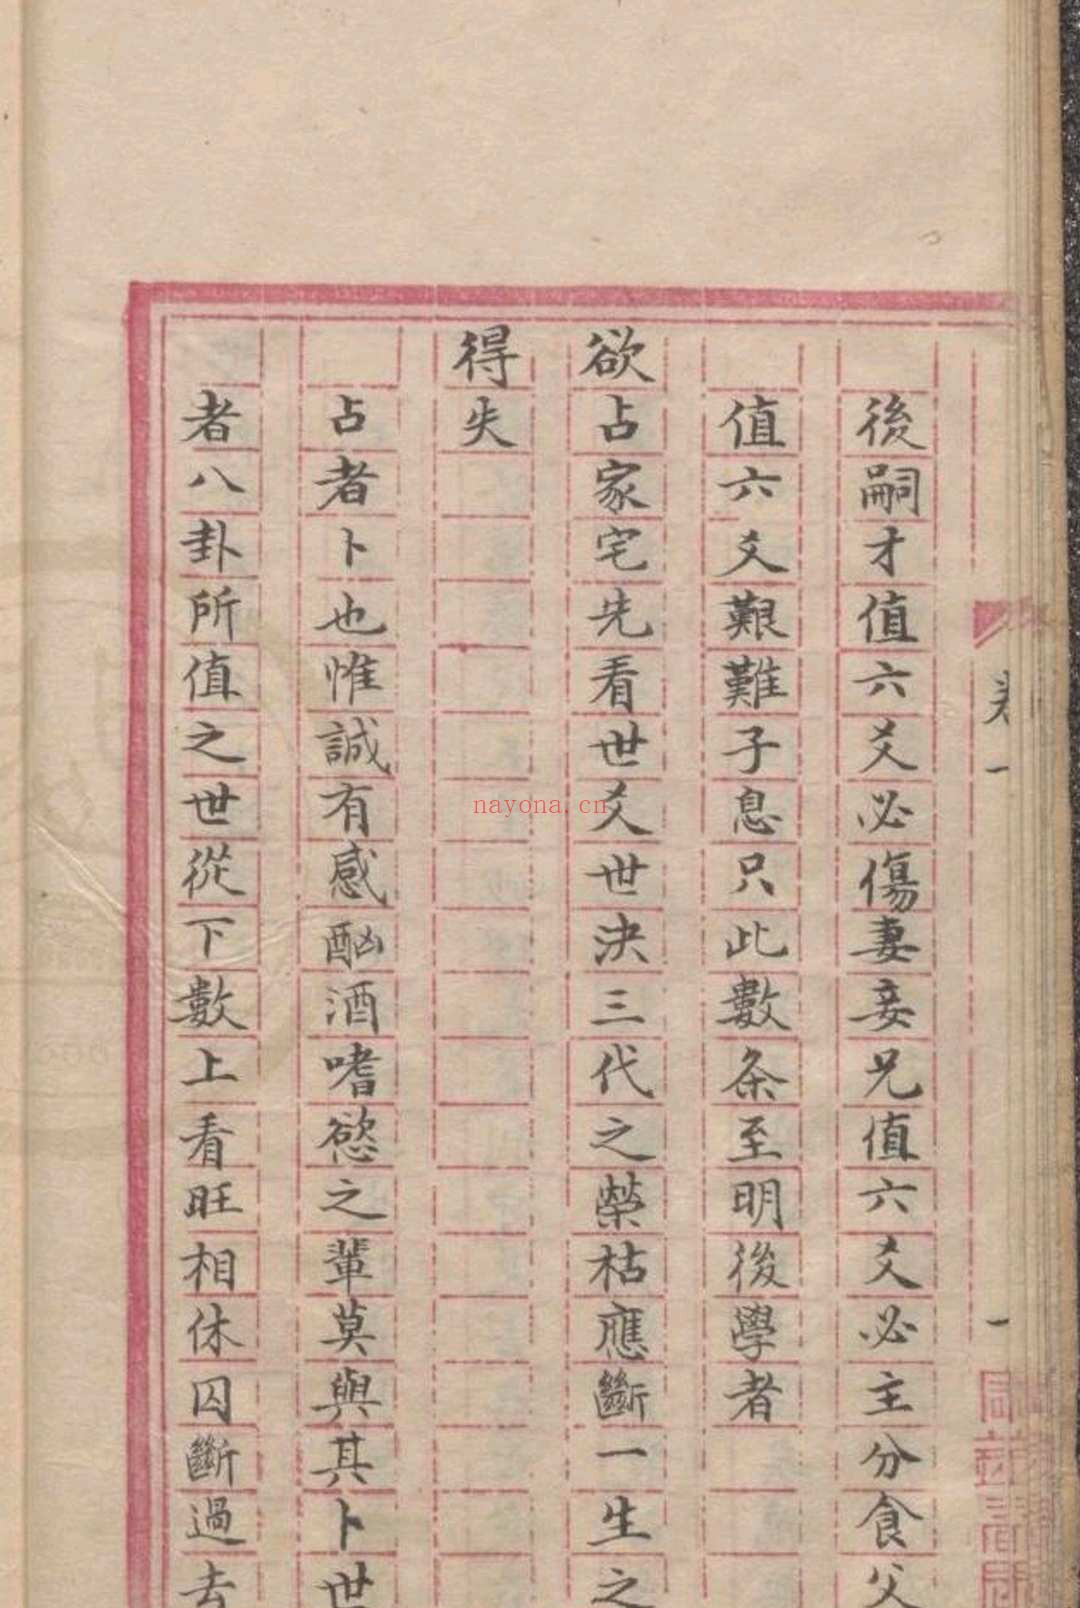 後嗣才值六爻必傷妻妾兄值六爻必主分食父
值六爻艱難子息只此數条至明後學者
欲占家宅先看世爻世決三代之榮枯應斷一生之
得失
占者卜也惟誠有感酗酒嗜慾之輩莫與其卜世
者八卦所值之世從下數上看旺相休囚斷過去
一
一
nayona.cn